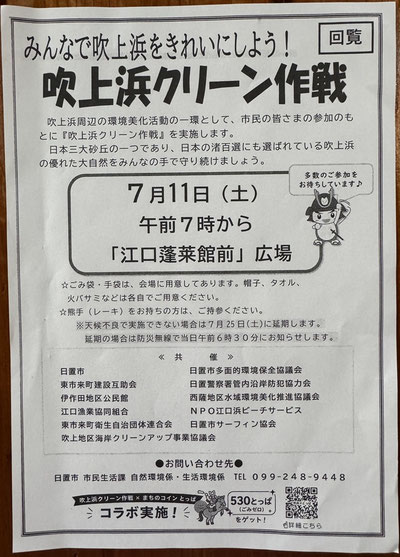 みんなで吹上浜をきれいにしよう！
回覧
吹上浜クリーン作戦
吹上浜周辺の環境美化活動の一環として、市民の皆さまの参加のも
とに『吹上浜クリーン作戦』を実施します。
日本三大砂丘の一つであり、日本の渚百選にも選ばれている吹上浜
の優れた大自然をみんなの手で守り続けましょう。
多数のご参加を
お待ちしています♪
７月11日（土）
午前７時から
「江口蓬莱館前」広場
☆ごみ袋・手袋は、会場に用意してあります。帽子、タオル、
火バサミなどは各自でご用意ください。
☆熊手（レーキ）をお持ちの方は、ご持参ください。
※天候不良で実施できない場合は７月25日(土)に延期します。
延期の場合は防災無線で当日午前６時３０分にお知らせします。
≪ 共 催 ≫
日置市
日置市多面的環境保全協議会
東市来町建設互助会
日置警察署管内沿岸防犯協力会
伊作田地区公民館
西薩地区水域環境美化推進協議会
江口漁業協同組合
ＮＰＯ江口浜ビーチサービス
東市来町衛生自治団体連合会
日置市サーフィン協会
吹上地区海岸クリーンアップ事業協議会
●お問い合わせ先●
日置市 市民生活課 自然環境係・生活環境係 TEL 099-248-9448
吹上浜クリーン作戦 × まちのコイン とっぱ
コラボ実施！
530とっぱ
(ごみゼロ)
をゲット！
詳細こちら